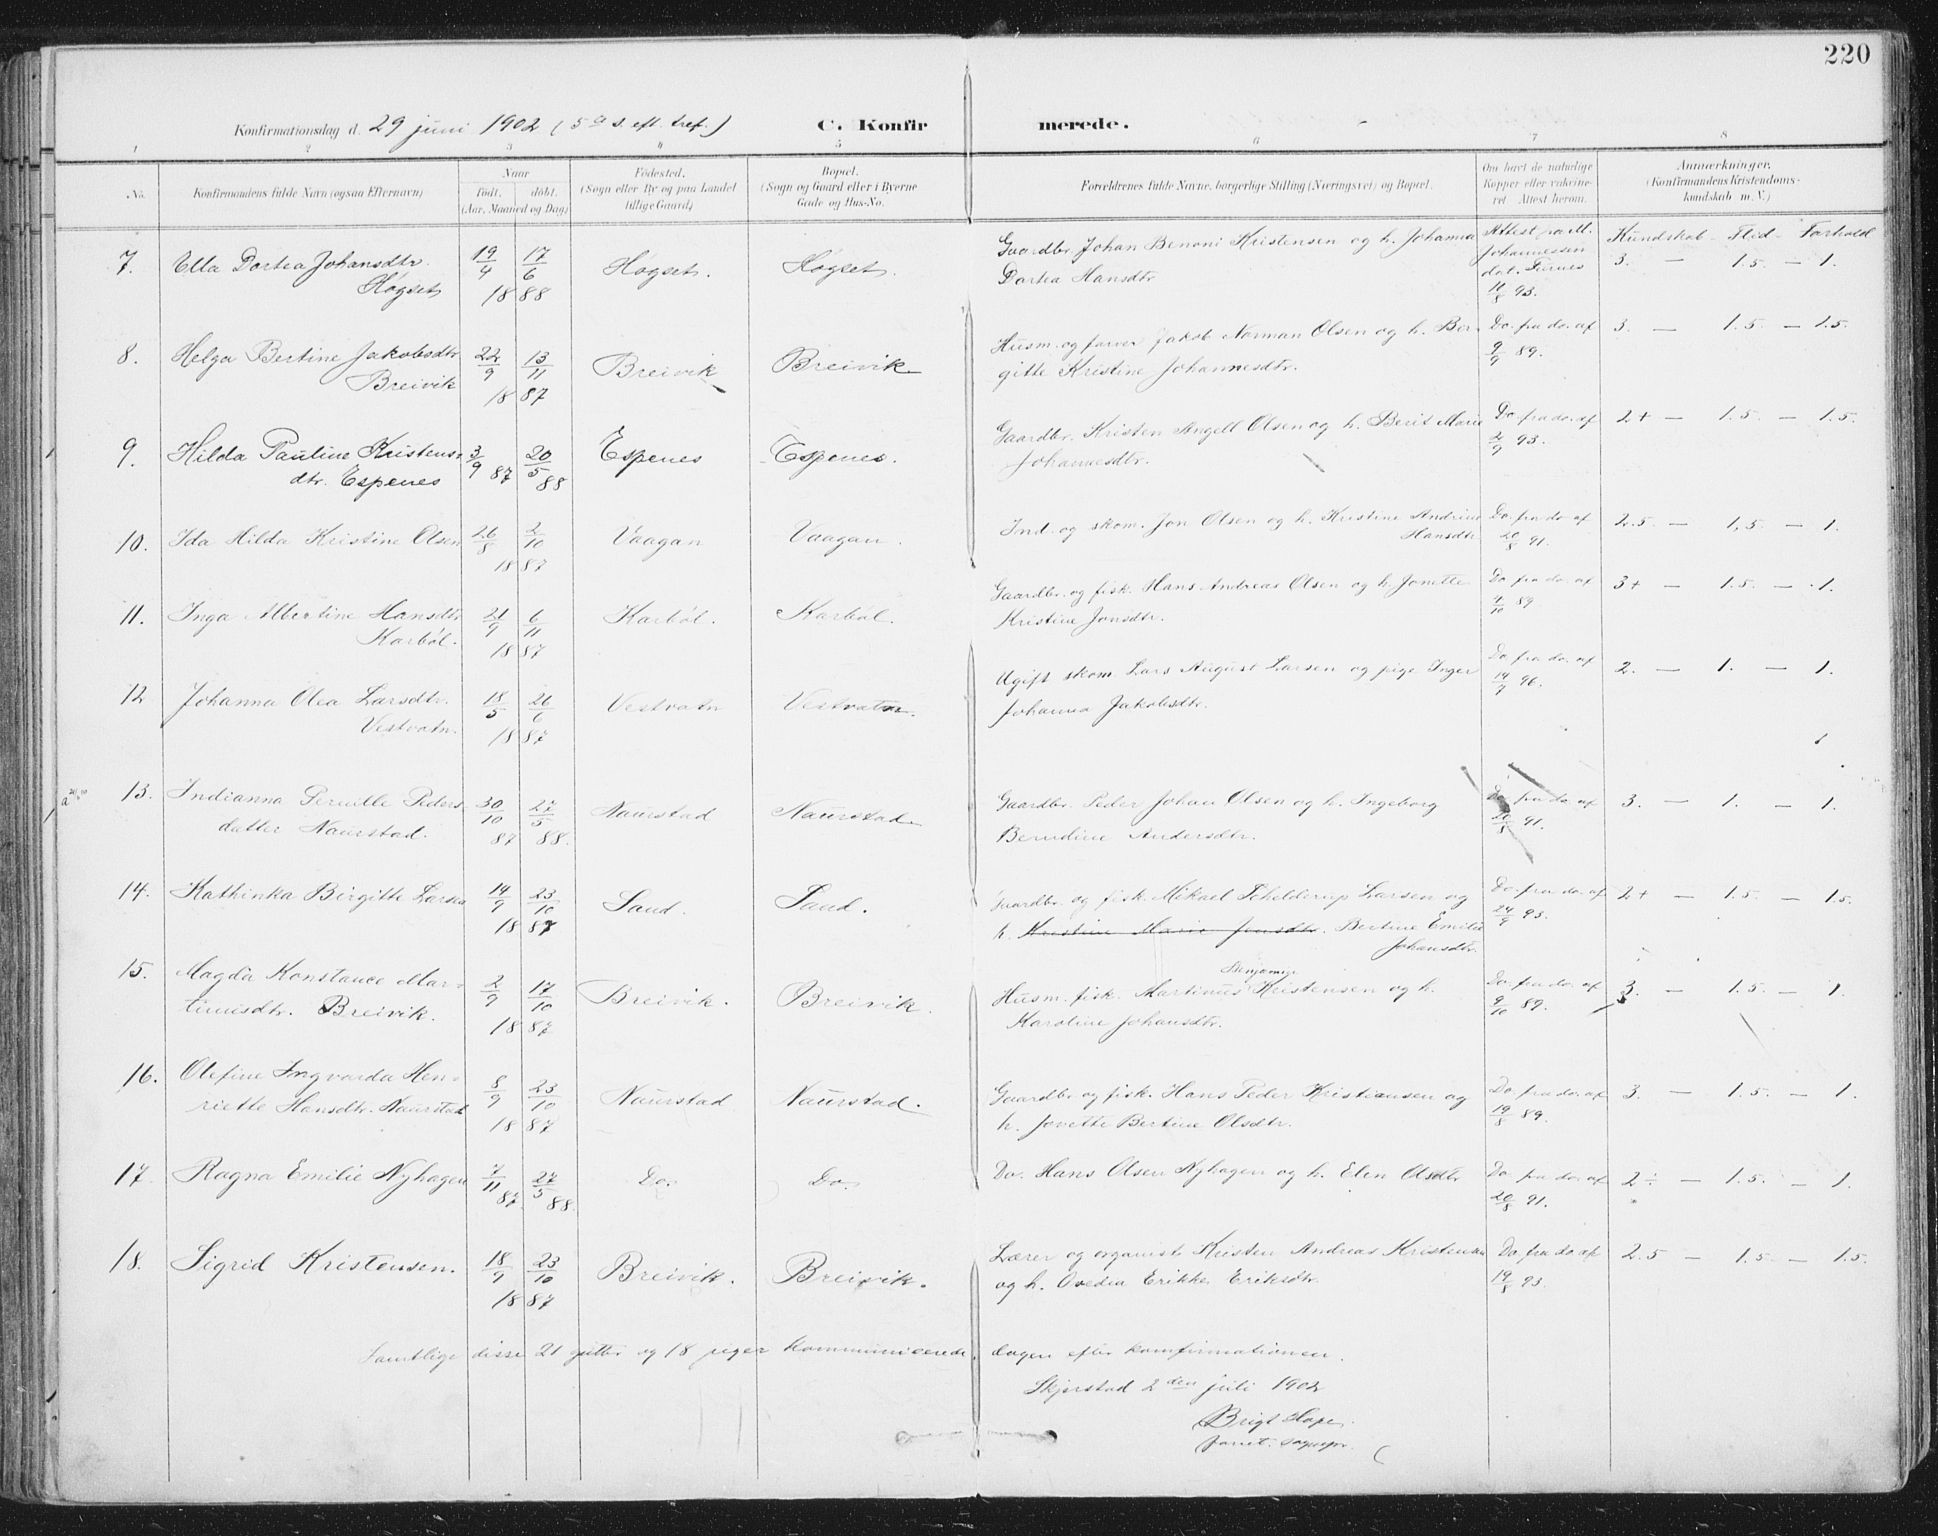 220
Konfirmationsdag d. 29 juni 1902 (5te s. eft. tref.) C. Konfirmerede.
1 2 3 4 5 6 7 8
No. Konfirmandens fulde Navn (ogsaa Efternavn) Naar født. døbt. (Aar, Maaned og Dag) Födested. (Sogn eller By og paa Landet tillige Gaard) Bopæl. (Sogn og Gaard eller i Byerne Gade og Hus-No. Forældrenes fulde Navne, borgerlige Stilling (Næringsvei) og Bopæl. Om havt de naturlige Kopper eller vaccineret. Attest herom. Anmærkninger. (Konfirmandens Kristendomskundskab m. V.)
Kundskab - Flid - Forhold
7. Ella Dortea Johansdtr. 19/4 17/6 Høgset. Høgset. Gaardbr. Johan Benoni Kristensen og h. Johanna Attest fra M. Johannessen 3. — 1.5. — 1.
Høgset 18 88 Dortea Hansdtr dat. Furnes 11/8 93.
8. Helga Bertine Jakobsdtr 22/9 13/11 Breivik Breivik Husm. og farver Jakob Norman Olsen og h. Ber- Do. fra do. af 3. — 1.5. — 1.5.
Breivik 18 87 gitte Kristine Johannesdtr. 9/9 89.
9. Hilda Pauline Kristens- 3/9 87 20/5 88 Espenes Espenes. Gaardbr. Kristen Angell Olsen og h. Berit Marie Do. fra do. af 2+ — 1.5. — 1.5.
dtr. Espenes Johannesdtr. 2/9 93.
10. Ida Hilda Kristine Olsen 26/8 2/10 Vaagan Vaagan. Ind. og skom. Jon Olsen og h. Kristine Andrine Do. fra do. af 2.5. — 1.5 — 1.
18 87 Hansdtr 20/8 91.
11. Inga Albertine Hansdtr 21/9 6/11 Karbøl. Karbøl. Gaardbr. og fisk. Hans Andreas Olsen og h. Jonette Do. fra do. af 3+ — 1.5. — 1.
Karbøl. 18 87 Kristine Jonsdtr. 9/10 89
12 Johanna Olea Larsdtr. 18/5 26/6 Vestvatn Vestvatn. Ugift skom. Lars August Larsen og pige Inger Do. fra do. af 2. — 1. — 1.
Vestvatn. 18 87 Johanna Jakobsdtr. 14/9 96.
13. Indianna Pernille Peders- 30/10 27/5 Naurstad Naurstad. Gaardbr. Peder Johan Olsen og h. Ingeborg Do. fra do. af 3. — 1. — 1.
datter Naurstad. 87 88. Berndine Andersdtr. 20/8 91.
14. Kathinka Birgitte Larsen 14/9 23/10 Sand. Sand. Gaardbr. og fisk. Mikael Schelderup Larsen og Do. fra do. af 2+ — 1.5. — 1.5.
18 87 h. Kristine Marie Jensdtr. Bertine Emilie 24/9 93.
Johansdtr.
15. Magda Konstance Mar- 2/9 17/10 Breivik. Breivik. Husm. fisk. Martinus Benjamin Kristensen og h. Do. fra do. af 3. — 1.5. — 1.
tinusdtr. Breivik. 18 87 Karoline Johansdtr. 9/10 89.
16. Olefine Ingvarda Hen- 8/9 23/10 Naurstad Naurstad. Gaardbr. og fisk. Hans Peder Kristiansen og Do. fra do. af 3. — 1.5. — 1.
riette Hansdtr. Naurstad 18 87 h. Jonette Bertine Olsdtr. 19/8 89.
17. Ragna Emilie Nyhagen 7/11 87. 27/5 88. Do. Do. Do. Hans Olsen Nyhagen og h. Elen Olsdtr Do. fra do. af 2÷ — 1.5. — 1.
20/8 91.
18. Sigrid Kristensen. 18/9 23/10 Breivik. Breivik. Lærer og organist Kristen Andreas Kristensen Do. fra do. af 2.5 — 1.5. — 1.5.
18 87 og h. Ovedia Erikke Eriksdtr. 19/8 93.
Samtlige disse 21 gutter og 18 piger kommunicerede dagen efter konfirmationen.
Skjerstad 2den juli 1902
Brigt Hope.